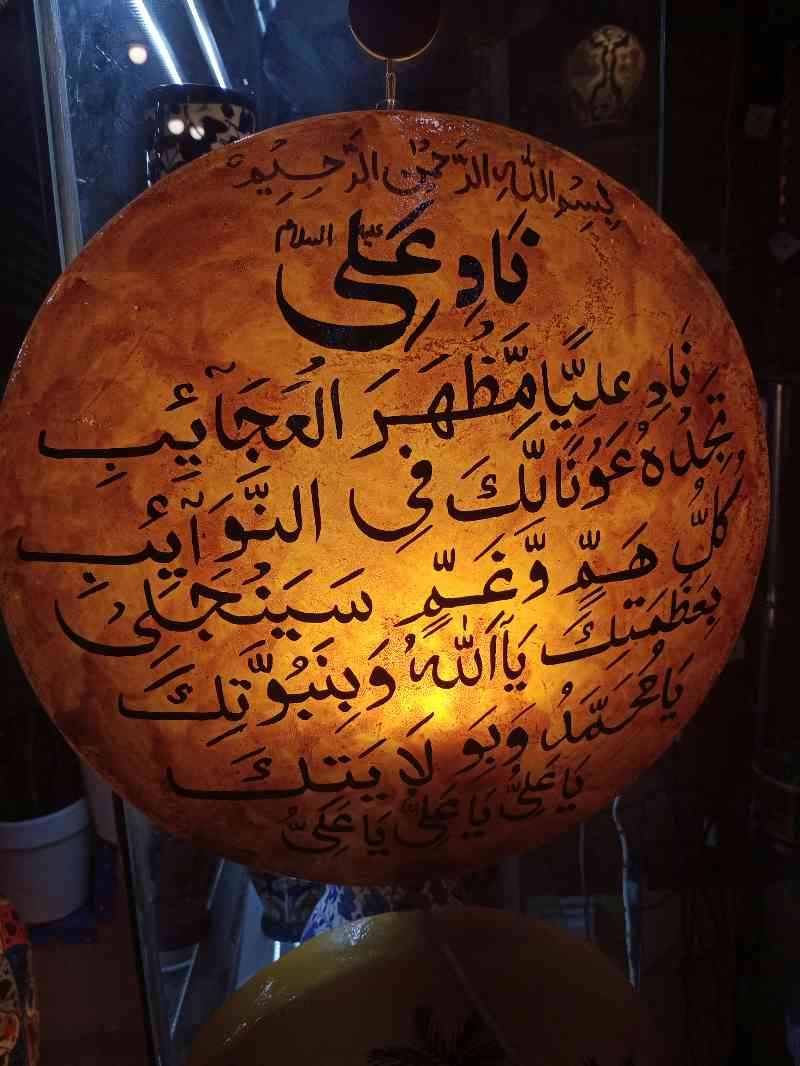 بِسْمِ اللّٰهِ الرَّحْمٰنِ الرَّحِيْمِ
نَادِ عَلِی عليه السلام
نَادِ عَلِيًّا مَّظْهَرَ الْعَجَآئِبِ
تَجِدْهُ عَوْنًا لَّكَ فِی النَّوَآئِبِ
كُلُّ هَمٍّ وَّغَمٍّ سَيَنْجَلِیْ
بِعَظَمَتِكَ يَآ اَللّٰهُ وَبِنَبُوَّتِكَ
يَا مُحَمَّدُ وَبَوِلَايَتِكَ
يَا عَلِیُّ يَا عَلِیُّ يَا عَلِیُّ